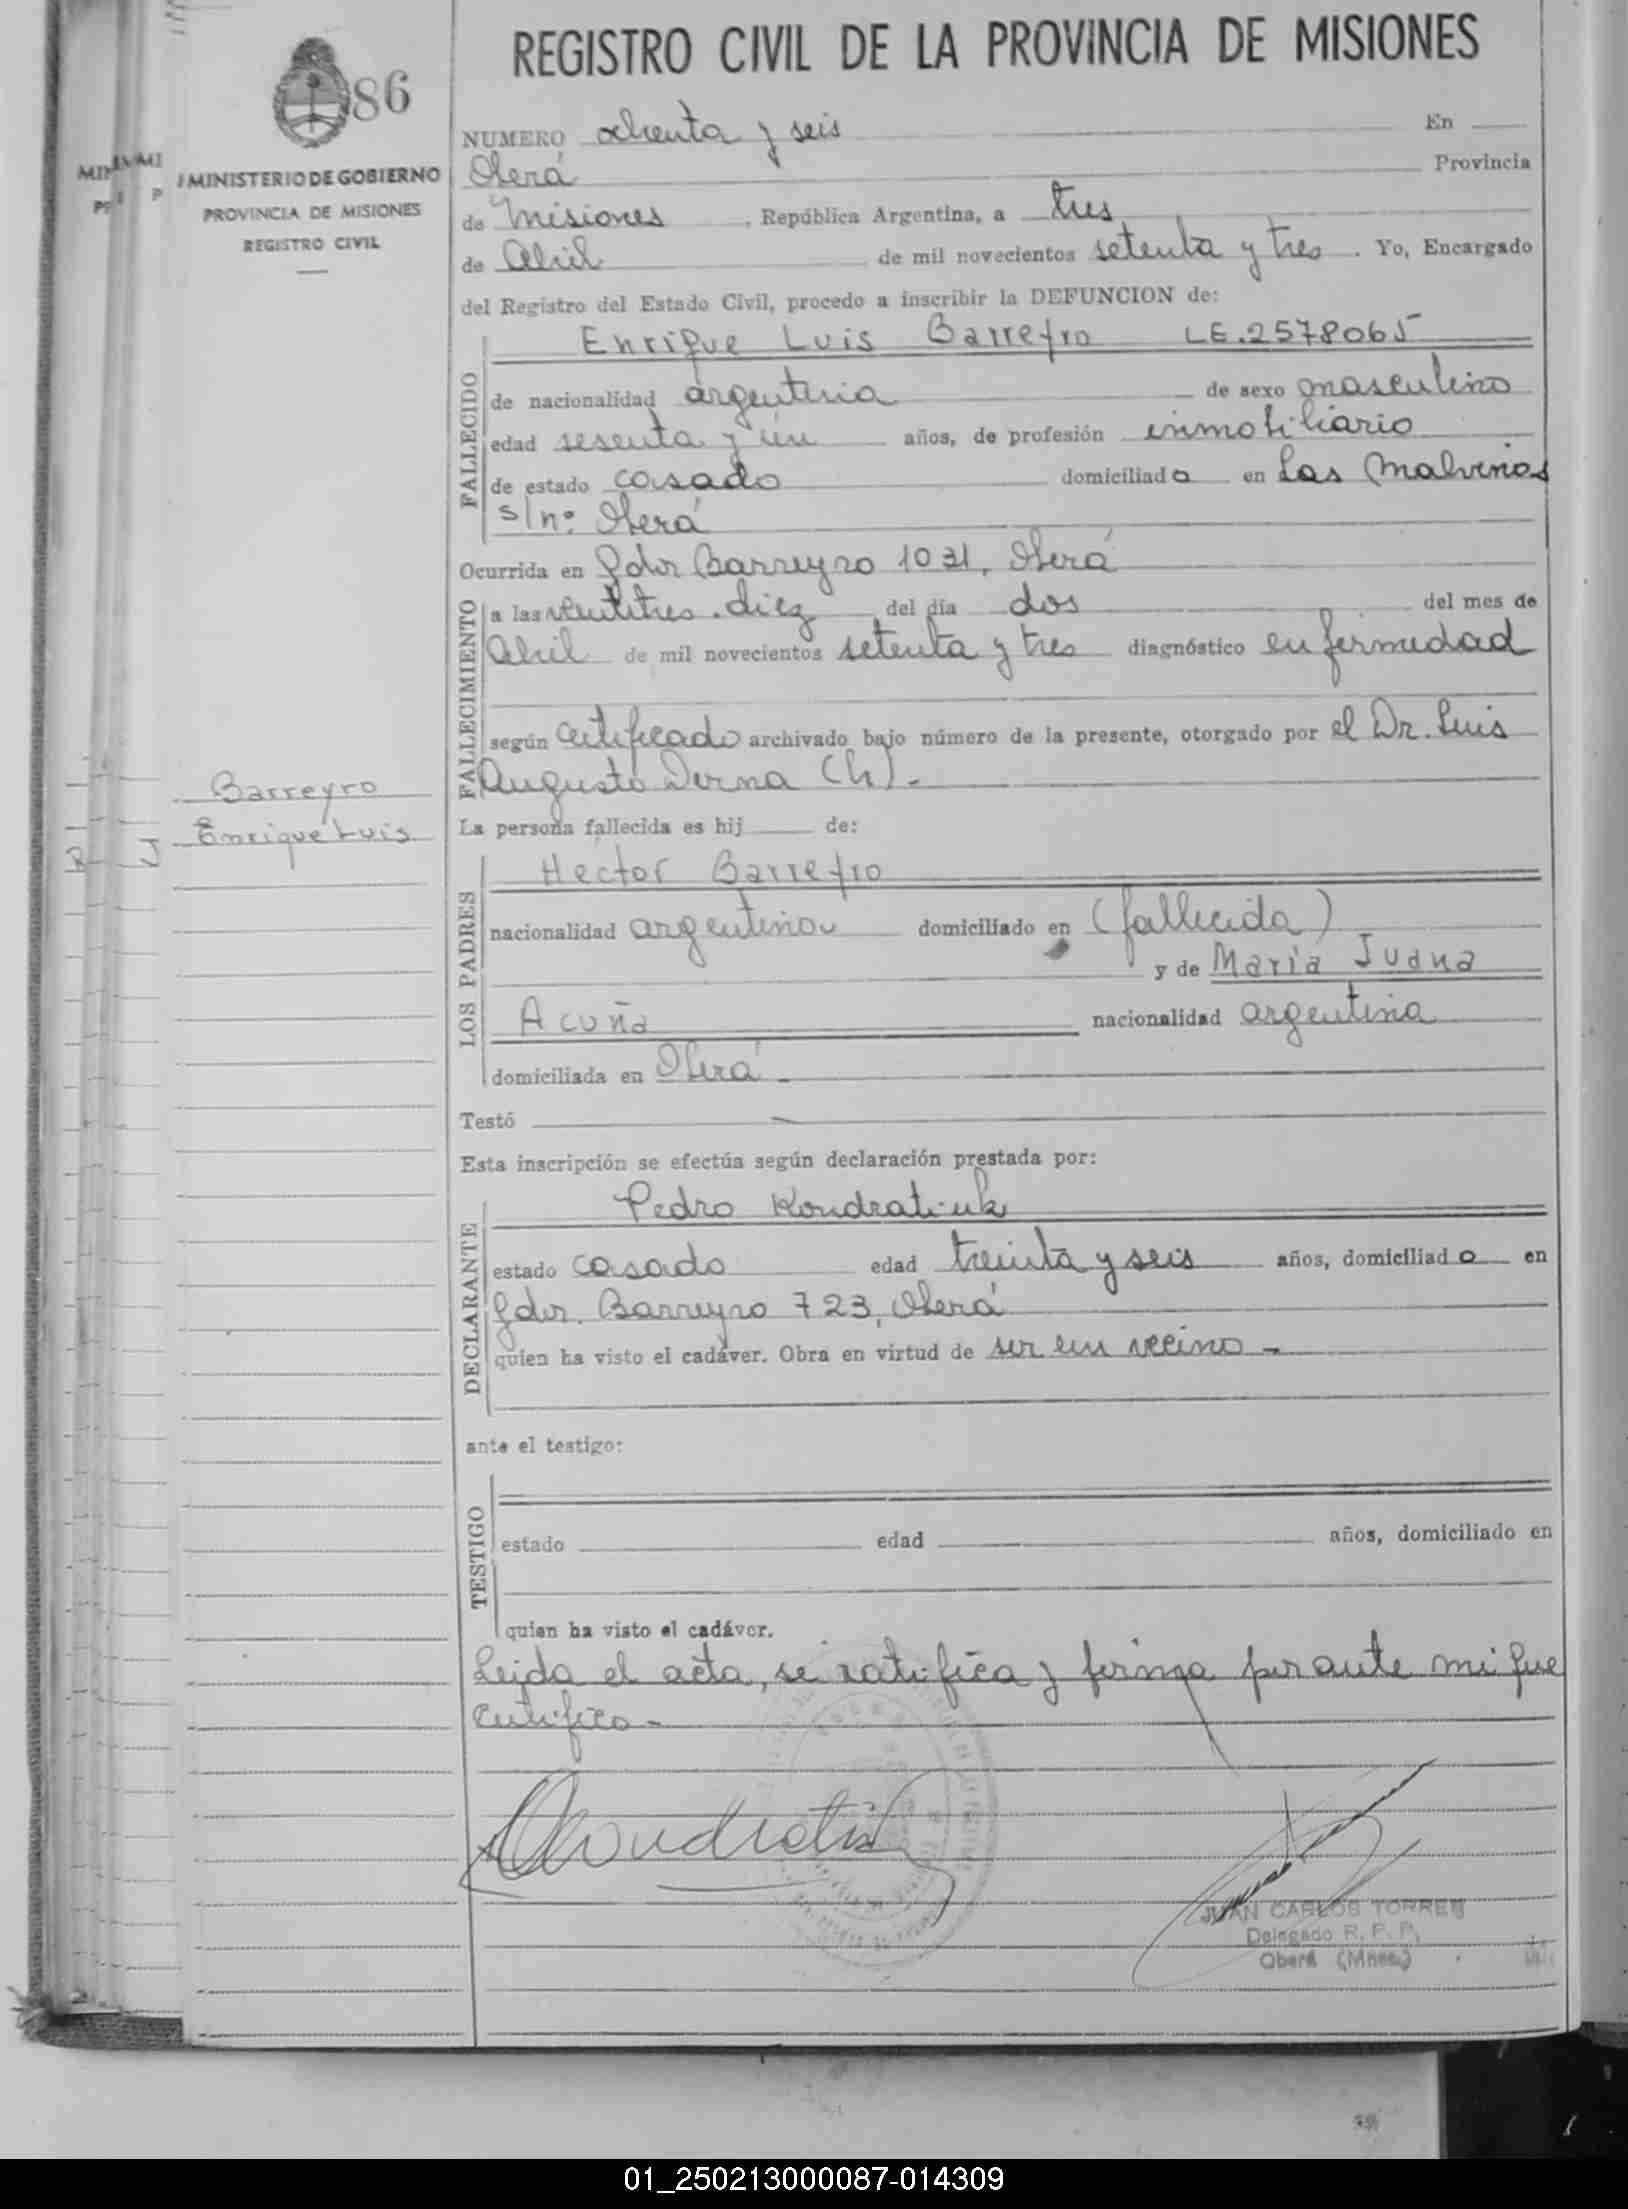 REGISTRO CIVIL DE LA PROVINCIA DE MISIONES
86
MINISTERIO DE GOBIERNO
PROVINCIA DE MISIONES
REGISTRO CIVIL
NUMERO ochenta y seis En
Oberá Provincia
de Misiones, República Argentina, a tres
de Abril de mil novecientos setenta y tres. Yo, Encargado
del Registro del Estado Civil, procedo a inscribir la DEFUNCION de:
Enrique Luis Barreyro LE.2578065
FALLECIDO
de nacionalidad argentina de sexo masculino
edad sesenta y un años, de profesión inmobiliario
de estado casado domiciliado en Las Malvinas
s/nº Oberá
Ocurrida en Gdor Barreyro 1031, Oberá
FALLECIMIENTO
a las ventitres. diez del día dos del mes de
Abril de mil novecientos setenta y tres diagnóstico enfermedad
según certificado archivado bajo número de la presente, otorgado por el Dr. Luis
Augusto Derna (h).-
Barreyro
Enrique Luis
La persona fallecida es hij de:
LOS PADRES
Hector Barreyro
nacionalidad argentino domiciliado en (fallecido)
y de María Juana
Acuña nacionalidad argentina
domiciliada en Oberá -
Testó
Esta inscripción se efectúa según declaración prestada por:
DECLARANTE
Pedro Kondratiuk
estado casado edad treinta y seis años, domiciliado en
Gdor. Barreyro 723, Oberá
quien ha visto el cadáver. Obra en virtud de ser un vecino -
ante el testigo:
TESTIGO
estado edad años, domiciliado en
quien ha visto el cadáver.
Leida el acta, se ratifica y firma por ante mi que
certifico -
Kondratiuk
JUAN CARLOS TORRES
Delegado R. P. P.
Oberá (Mnes.)
01_250213000087-014309